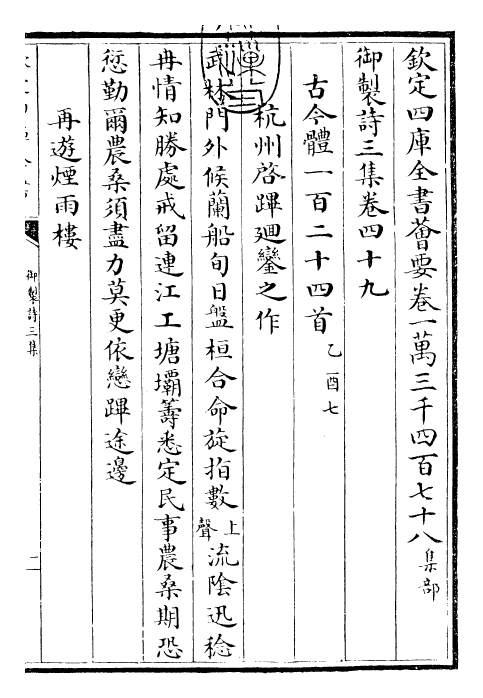 欽定四庫全書薈要卷一萬三千四百七十八 集部
御製詩三集卷四十九
古今體一百二十四首 乙酉七
杭州啓蹕廻鑾之作
武林門外候蘭船旬日盤桓合命旋指數上聲流陰迅稔
冉情知勝處戒留連江工塘壩籌悉定民事農桑期恐
愆勤爾農桑須盡力莫更依戀蹕途邊
再遊煙雨樓
御製詩三集